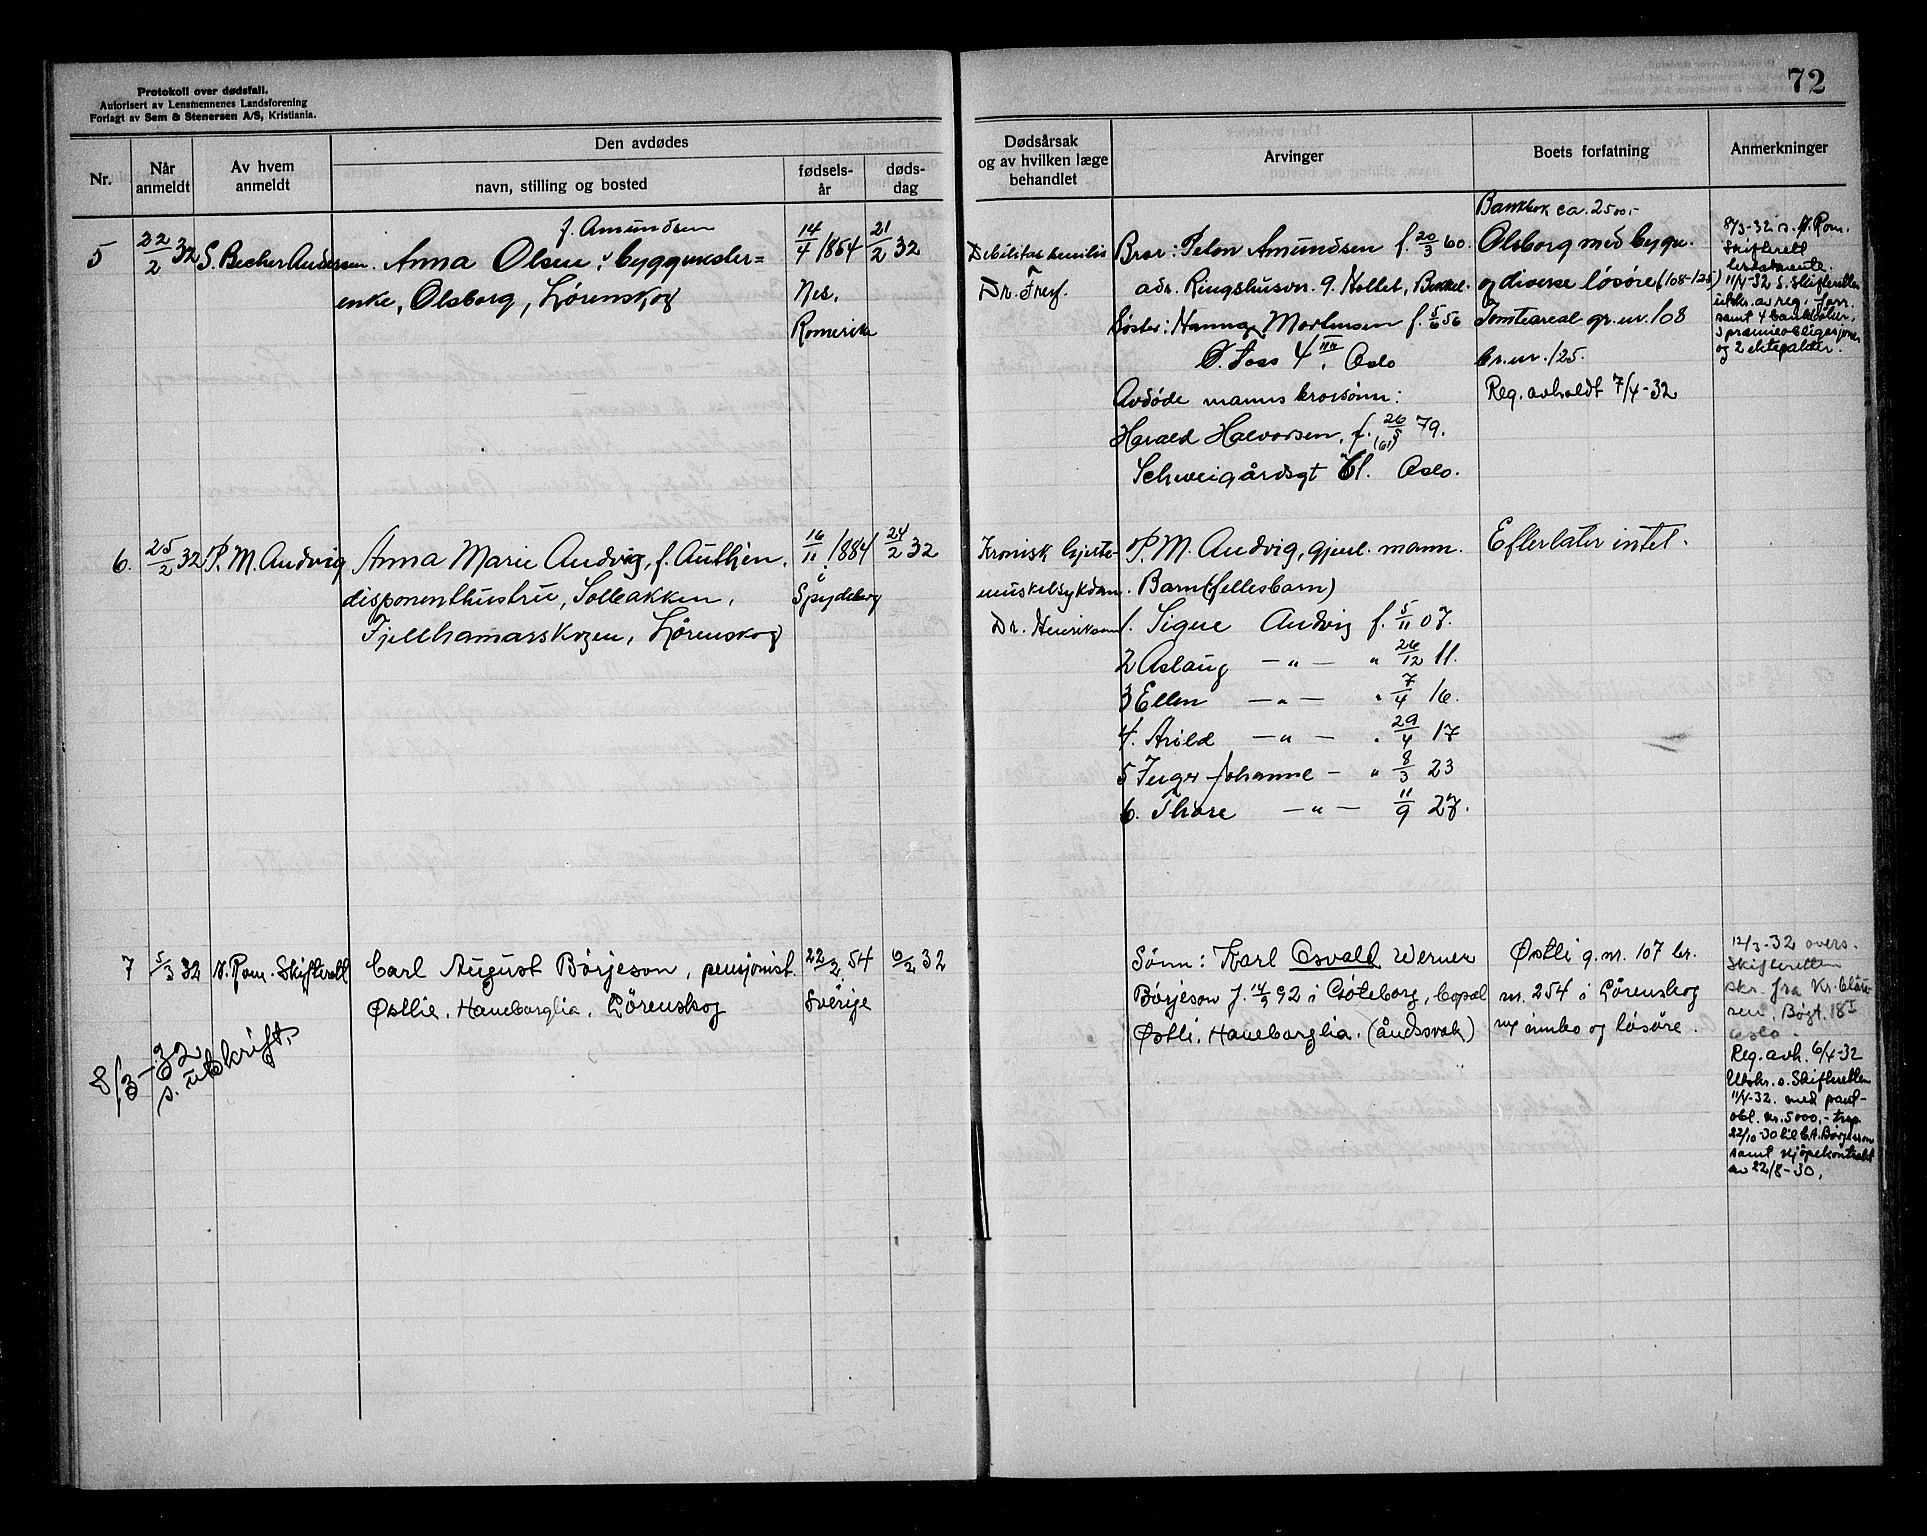 Protokoll over dødsfall.
Autorisert av Lensmennenes Landsforening
Forlagt av Sem & Stenersen A/S, Kristiania.
72
Nr.
Når anmeldt
Av hvem anmeldt
Den avdødes
navn, stilling og bosted
fødsels-år
døds-dag
Dødsårsak
og av hvilken læge
behandlet
Arvinger
Boets forfatning
Anmerkninger
5
22/2 32
S. Becher Andersen.
f. Amundsen
Anna Olsen, byggmester=
enke, Olsborg, Lørenskog
14/4 1864
Nes,
Romerike
21/2 32
Debilitas senilis
Dr. Freyf.
Bror: Peter Amundsen f. 20/3 60.
adr. Ringshusvn. 9. Kollet, Bekkel.
Søster: Hanna Mortensen f. 5/6 56
Ø. Foss 4 IIII, Oslo
Avdøde manns brorsønn:
Harald Halvorsen, f. 26/5 79.
(61)
Schweigårdsgt 61. Oslo.
Bankbok ca. 2500,-
Olsborg med bygn.
og diverse løsøre (108-125)
Tomteareal gr. nr. 108
br. nr. 125.
Reg. avholdt 7/4-32
8/3-32 s. N. Rom.
Skifterett
testamente.
11/4-32 S. Skifteretten
utskr. av reg. forr.
samt 4 bankbøker,
3 premieobligasjoner
og 2 ektepakter.
6.
25/2 32
P. M. Andvig
Anna Marie Andvig, f. Authen,
disponenthustru, Solbakken,
Fjellhamarskogen, Lørenskog
16/11 1884
Spydeberg
24/2 32
Kronisk hjerte-
muskelsykdom.
Dr. Henriksen
P. M. Andvig, gjenl. mann.
Barn (fellesbarn)
1. Signe Andvig f. 5/11 07.
2 Aslaug — " — " 26/12 11.
3 Ellen — " — " 7/4 16.
4. Arild — " — " 29/4 17
5 Inger Johanne — " 8/3 23
6. Thore — " — 11/9 27.
Efterlater intet.
7
5/3 32
N. Rom. Skifterett
Carl August Börjeson, pensjonist.
Østlie, Haneborglia, Lörenskog
22/2 54
Sverige
6/2 32
8/3-32
s. utskrift.
Sønn: Karl Osvald Werner
Börjeson f. 14/9 92 i Göteborg, bopæl
Østli, Haneborglia. (åndsvak)
Østli g. nr. 107 br.
nr. 254 i Lörenskog
m/ innbo og løsøre.
12/3-32 overs.
Skifteretten
skr. fra Kr.
Bogt. 18 I
Oslo.
Reg. avh. 6/4-32
Utskr. s. Skifteretten
11/4-32. med pant-
obl. kr. 5000,-
22/10-30 til C. A. Börjeson
samt kjöpekontrakt
av 22/8-30.